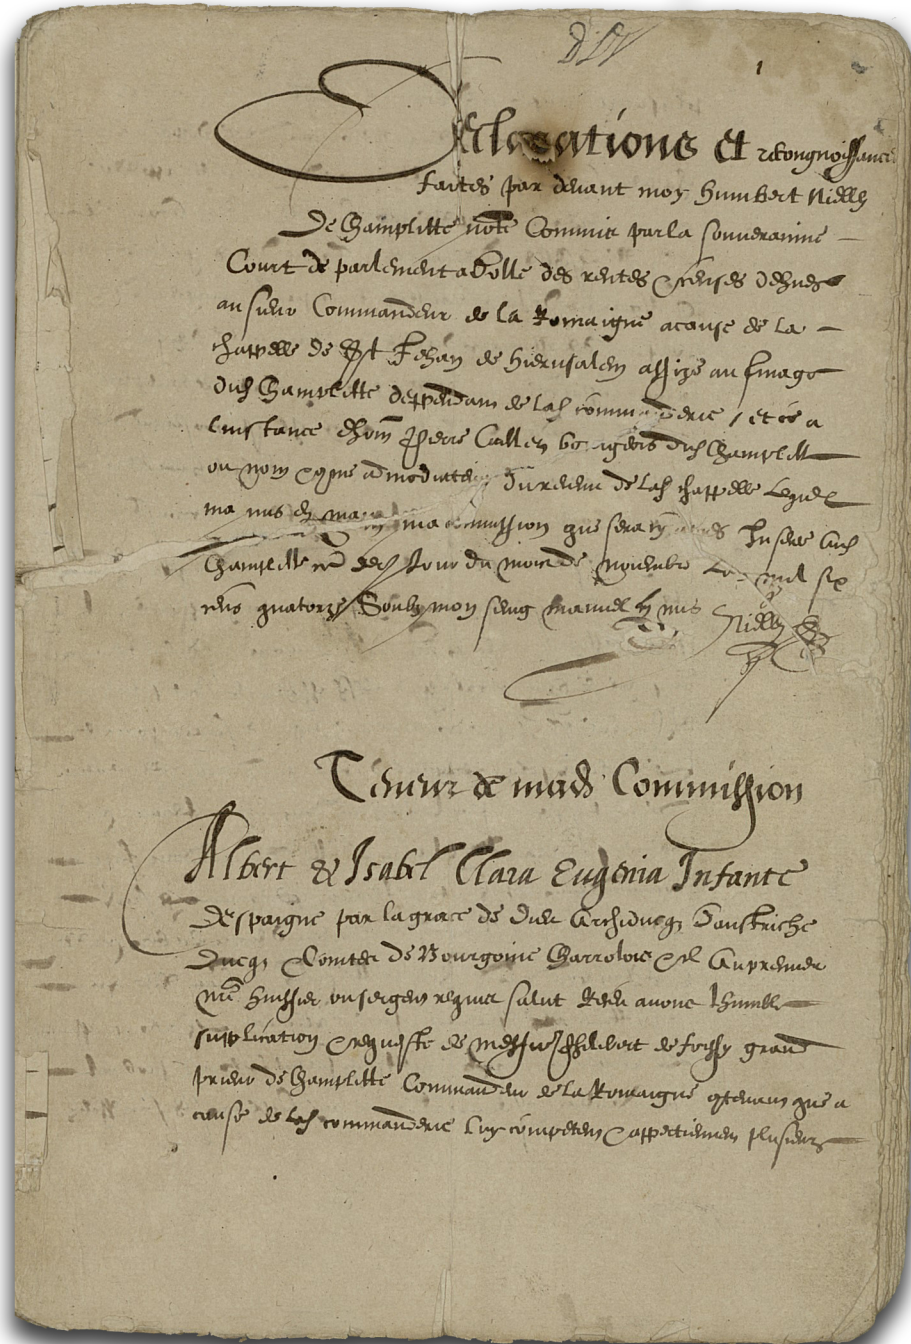 1
Declarations et recongnoissances
faites par devant moy Humbert Nielly
de Champlitte note Commis par la souveraine
Court de parlement a Dolle des rentes & censes dehues
au sieur Commandeur de la Romaigne a cause de la
chappelle de St Jehan de Hierusalem assize au finage
dud Champlitte deppendam de lad commanderie, et ce a
linstance dhom Pierre bourgeois dud Champlitte
ou nom & comme admodiateur du revenu de lad chappelle lequel
ma mis en main ma commission que sera cy Inseree aud
Champlitte ce jour du mois de novembre mil six
cens quatorze Soubz mon seing manuel cy mis Nielly
Teneur de mad Commission
Albert & Isabel Clara Eugenia Infante
Despaigne par la grace de Dieu Archiducqz daustriche
Ducqz & Comtes de Bourgoine Charrolois &c Au premier
nre huissier ou sergen requis salut Receu avons lhumble
supplication & requeste de messire de foissy grand
prieur de Champlitte Commandeur de la Romaigne contenam que a
cause de lad commanderie luy competem & appertiennen plusieurs